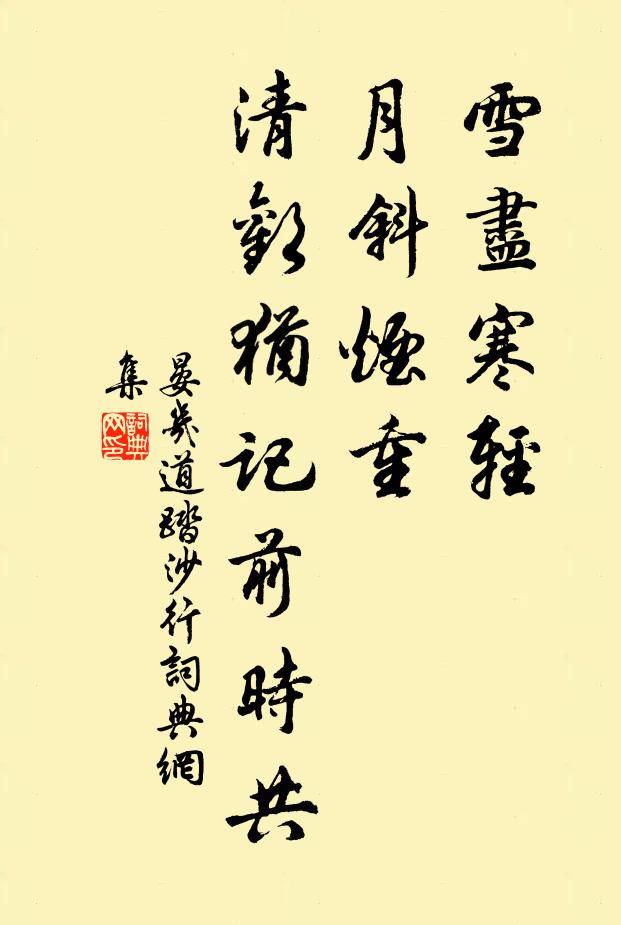 雪盡寒輕
月斜煙重
清歡猶記前時共
晏幾道踏沙行詞典網
集
詞典
网印